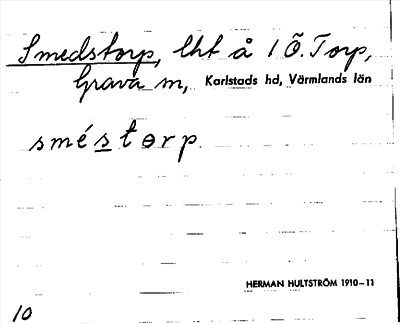 Smedstorp, lht å 1 Ö. Torp,
Grava sn, Karlstads hd, Värmlands län
sméstɵrp.
HERMAN HULTSTRÖM 1910–11
10